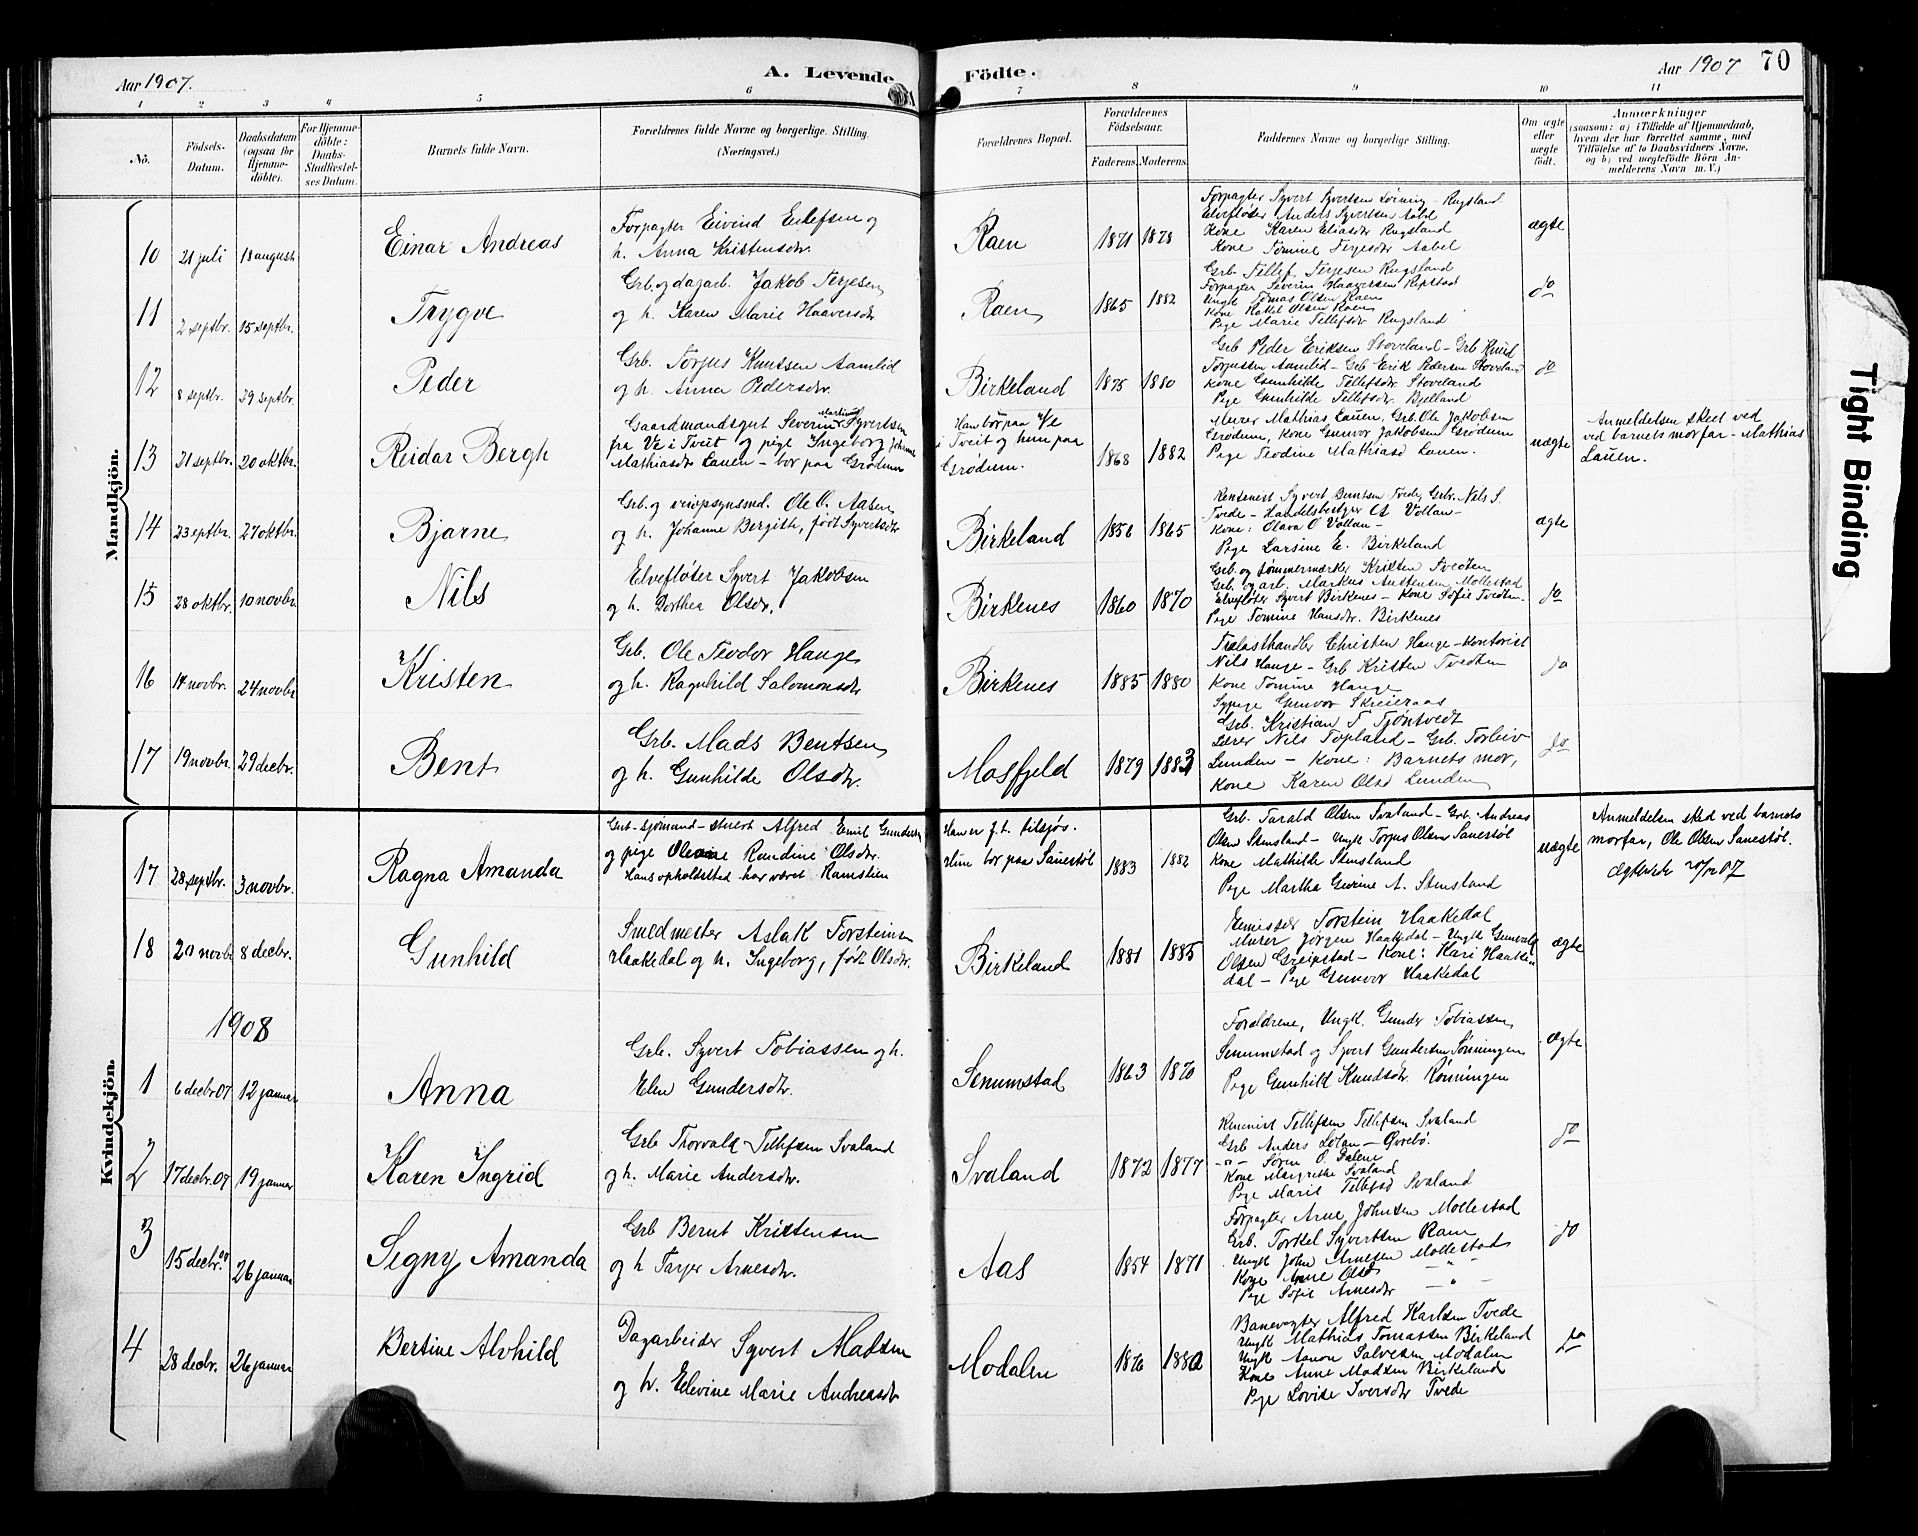 Aar 1907.
A. Levende Födte.
Aar 1907
70
1 2 3 4 5 6 7 8 9 10 11
No.
Födsels-Datum.
Daabsdatum (ogsaa for Hjemme-döbte).
For Hjemme-döbte: Daabs-Stadfæstel-ses Datum.
Barnets fulde Navn.
Forældrenes fulde Navne og borgerlige Stilling.
(Næringsvei.)
Forældrenes Bopæl.
Forældrenes Födselsaar.
Faderens. Moderens.
Faddernes Navne og borgerlige Stilling.
Om ægte eller uægte födt.
Anmærkninger
(saasom: a) i Tilfælde af Hjemmedaab, hvem der har forrettet samme, med Tilföielse af to Daabsvidners Navne, og b) ved uægtefödte Börn An-melderens Navn m. V.)
Mandkjön.
10 21 juli 18 august Einar Andreas
Forpagter Eivind Eilefsen og
h. Anna Kristensdtr.
Raen 1871 1878
Forpagter Syvert Syvertsen Lønning - Rugsland
Elvefløter Anders Syvertsen Aabel
Kone Karen Eliasdtr Rugsland
Kone Tomine Terjesdtr Aabel
ægte
11 2 septbr. 15 septbr. Trygve
Grb. og dagarb. Jakob Terjesen
og h. Karen Marie Haaversdtr
Raen 1865 1882
Grb. Tellef Terjesen Rugsland
Forpagter Severin Haaversen Ripstad
Ungk Tomas Olsen Raen
Kone Kattel Olsen Raen
Pige Marie Tellefsdtr Rugsland
do
12 8 septbr. 29 septbr. Peder
Grb. Torjus Knutsen Aamlid
og h. Anna Pedersdtr.
Birkeland 1875 1880
Grb Peder Eriksen Stoveland - Grb Knud
Torjussen Aamlid - Grb Erik Pedersen Stoveland
Kone Gunhilde Tellefsdtr Stoveland
Pige Gunhilde Tellefsdtr. Bjelland
do
13 21 septbr. 20 oktbr. Reidar Bergh
Gaardmandsgut Severin Martinus Syvertsen
fra Ve i Tveit og pige Ingeborg Johnne
Mathiasdtr Lauen - bor paa Grødum
Han bor paa Ve
i Tveit og hun paa
Grødum.
1868 1882
Murer Mathias Lauen, Grb. Ole Jakobsen
Grødum, Kone Gunvor Jakobsen Grødum
Pige Teodine Mathiasd Lauen.
uægte
Anmeldelsen skeet ved
ved barnets morfar - Mathias
Lauen.
14 23 septbr. 27 oktbr. Bjarne
Grb. og veiopsynsmd. Ole O. Aasen
og h. Johanne Bergith, født Syvertsdtr
Birkeland 1856 1865
Rentenist Syvert Guntsen Tvede, Grbr. Nils S.
Tvede - Handelsbestyrer O. Vollan -
Kone: Olava O Vollan -
Pige Larsine E. Birkeland
ægte
15 28 oktbr. 10 novbr. Nils
Elvefløter Syvert Jakobsen
og h. Dorthea Olsdtr.
Birkenes 1860 1870
Grb. og tømmermærker Kristen Tvedten
Grb. og arb. Markus Austensen Mollestad
Elvefløter Syvert Birkenes - Kone Sofie Tvedten.
Pige Tomine Hansdtr. Birkenes
do
16 14 novbr. 24 novbr Kristen
Grb. Ole Teodor Hauge
og h. Ragnhild Salomonsdtr
Birkenes 1885 1880
Trælasthandler Christen Hauge - Kontorist
Nils Hauge - Grb Kristen Tvedten
Kone Tomine Hauge
Sypige Gunvor Skeieraas
do
17 19 novbr. 29 decbr. Bent
Grb. Mads Bentsen
og h. Gunhilde Olsdtr.
Mosfjeld 1879 1883
Grb. Kristian T Tjøntvedt
Lærer Nils Topland - Grb. Torleiv
Lunden - Kone: Barnets mor,
Kone Karen Olsd Lunden
do
Kvindekjön.
17 28 septbr. 3 novbr. Ragna Amanda
Gut - sjømand - stuert Alfred Emil Gundersen
og pige Olene Randine Olsdtr.
Hans opholdssted har været Ramslien
Han er f.t. tilsjøs.
bor paa Sauestøl
1883 1882
Grb. Tarald Olsen Svaland - Grb. Andreas
Olsen Stensland - Ungk Torjus Olsen Sauestøl
Kone Mathilde Stensland
Pige Martha Gurine A. Stensland
uægte
Anmeldelsen sked ved barnets
morfar, Ole Olsen Sauestøl.
18 20 novbr 8 decbr. Gunhild
Smedmester Aslak Torsteins
Haakedal og h. Ingeborg, født Olsdtr.
Birkeland 1881 1885
Emissær Torstein Haakedal
Murer Jørgen Haakedal - Ungk Gunvald
Olsen Greipstad - Kone: Kari Haakedal
dal - Pige Gunvor Haakedal
ægte
1908
1 6 decbr 07 12 januar Anna
Grb. Syvert Tobiassen og h.
Elen Gundersdtr.
Senumstad 1863 1870
Forældrene, Ungk. Gunder Tobiassen,
Senumstad og Syvert Gundersen Lønningen
Pige Gunhild Knudsdtr. Rønningen
ægte
2 17 decbr. 07 19 januar Karen Ingrid
Grb Thorvald Tellefsen Svaland
og h. Marie Andersdtr.
Svaland 1872 1877
Tellefsen Tellefsen Svaland
Grb Anders Lølan - Øvrebø.
-"- Søren O. Dalene
Kone Margrethe Svaland
Pige Marie Tellefsd Svaland
do
3 15 decbr. 07 26 januar Signy Amanda
Grb Bernt Kristensen
og h Tarjer Arnesdtr.
Aas 1854 1871
Forpagter Arne Johnsen Mollestad
Grb. Torkel Syvertsen Raen
Ungk John Arnesen Mollestad
Kone Anne Olsd - " -
Pige Sofie Arnesdtr - " -
do
4 28 decbr. 26 januar Bertine Alvhild
Dagarbeider Syvert Madsen
og h. Edevine Marie Andreasdtr
Modalen 1876 1880
Banevogter Alfred Karlsen Tvede
Ungk Mathias Tomassen Birkeland
Ungk Aanon Salvesen Modalen
Kone Anne Madsen Birkeland
Pige Lovise Iversdtr Tvede
do
Tight Binding